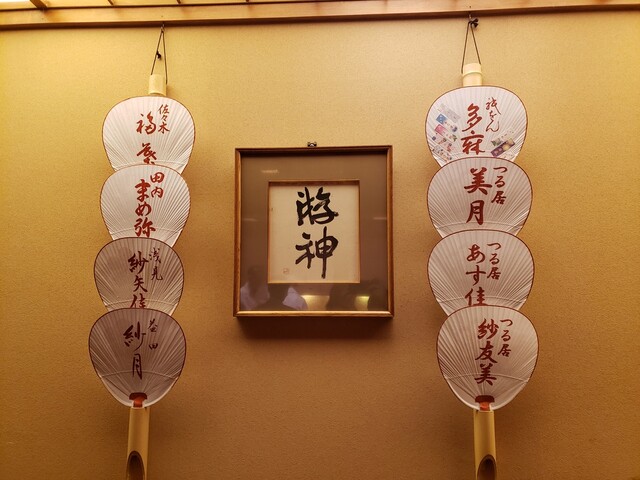 佐々木
福葉
田内
まめ弥
浅見
紗矢佳
紗月
游神
祇をん
多麻
つる居
美月
つる居
あす佳
つる居
紗友美